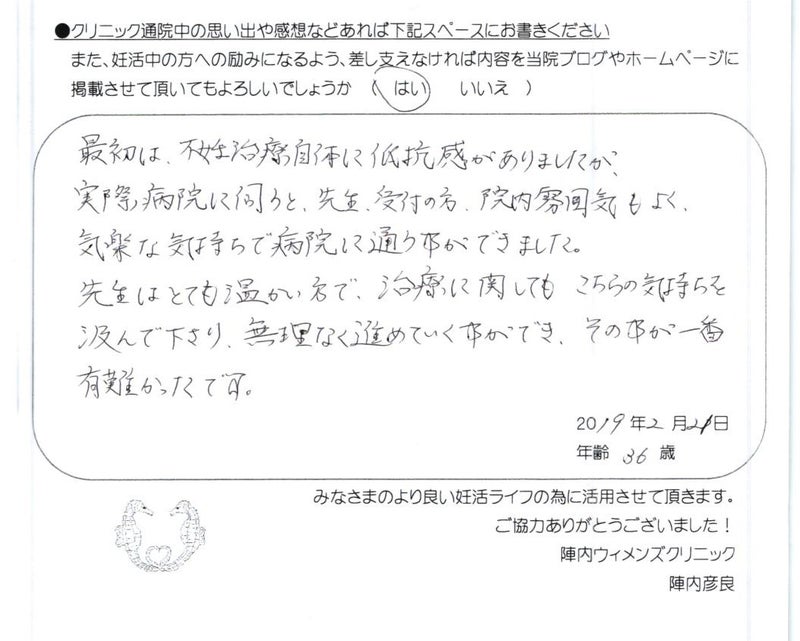 ●クリニック通院中の思い出や感想などあれば下記スペースにお書きください
また、妊活中の方への励みになるよう、差し支えなければ内容を当院ブログやホームページに
掲載させて頂いてもよろしいでしょうか ( はい いいえ )
最初は、不妊治療自体に低抗感がありましたが、
実際病院に伺うと、先生、受付の方、院内雰囲気もよく、
気楽な気持ちで病院に通う事ができました。
先生はとても温かい方で、治療に関しても こちらの気持ちを
汲んで下さり、無理なく進めていく事ができ、その事が一番
有難かったです。
2019年2月21日
年齢 36 歳
みなさまのより良い妊活ライフの為に活用させて頂きます。
ご協力ありがとうございました！
陣内ウィメンズクリニック
陣内彦良